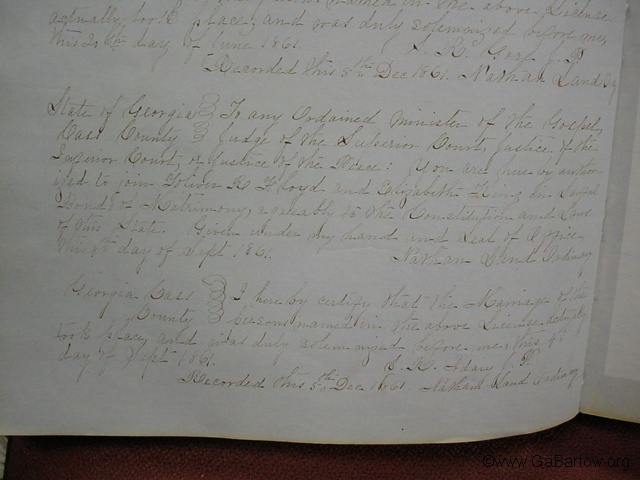 named in the above License
actually took place, and was duly solemnized before me,
this day of June 1861. J.P.
Recorded this 5th Dec 1861. Nathan Land Ord
State of Georgia To any Ordained Minister of the Gospel,
Cass County Judge of the Superior Court, Justice of the
Inferior Court, or Justice of the Peace: You are hereby author
ized to join Toliver R Floyd and Elizabeth King in Lawful
Bonds of Matrimony, agreeably to the Constitution and Laws
of this State. Given under my hand and Seal of Office
this 4th day of Sept 1861. Nathan Land Ordinary
Georgia Cass I hereby certify that the Marriage of the
County persons named in the above License, actually
took place, and was duly solemnized before me, this 4th
day of Sept 1861. S. R. Adair J.P.
Recorded this 5th Dec 1861. Nathan Land Ordinary
©www.GaBartow.org